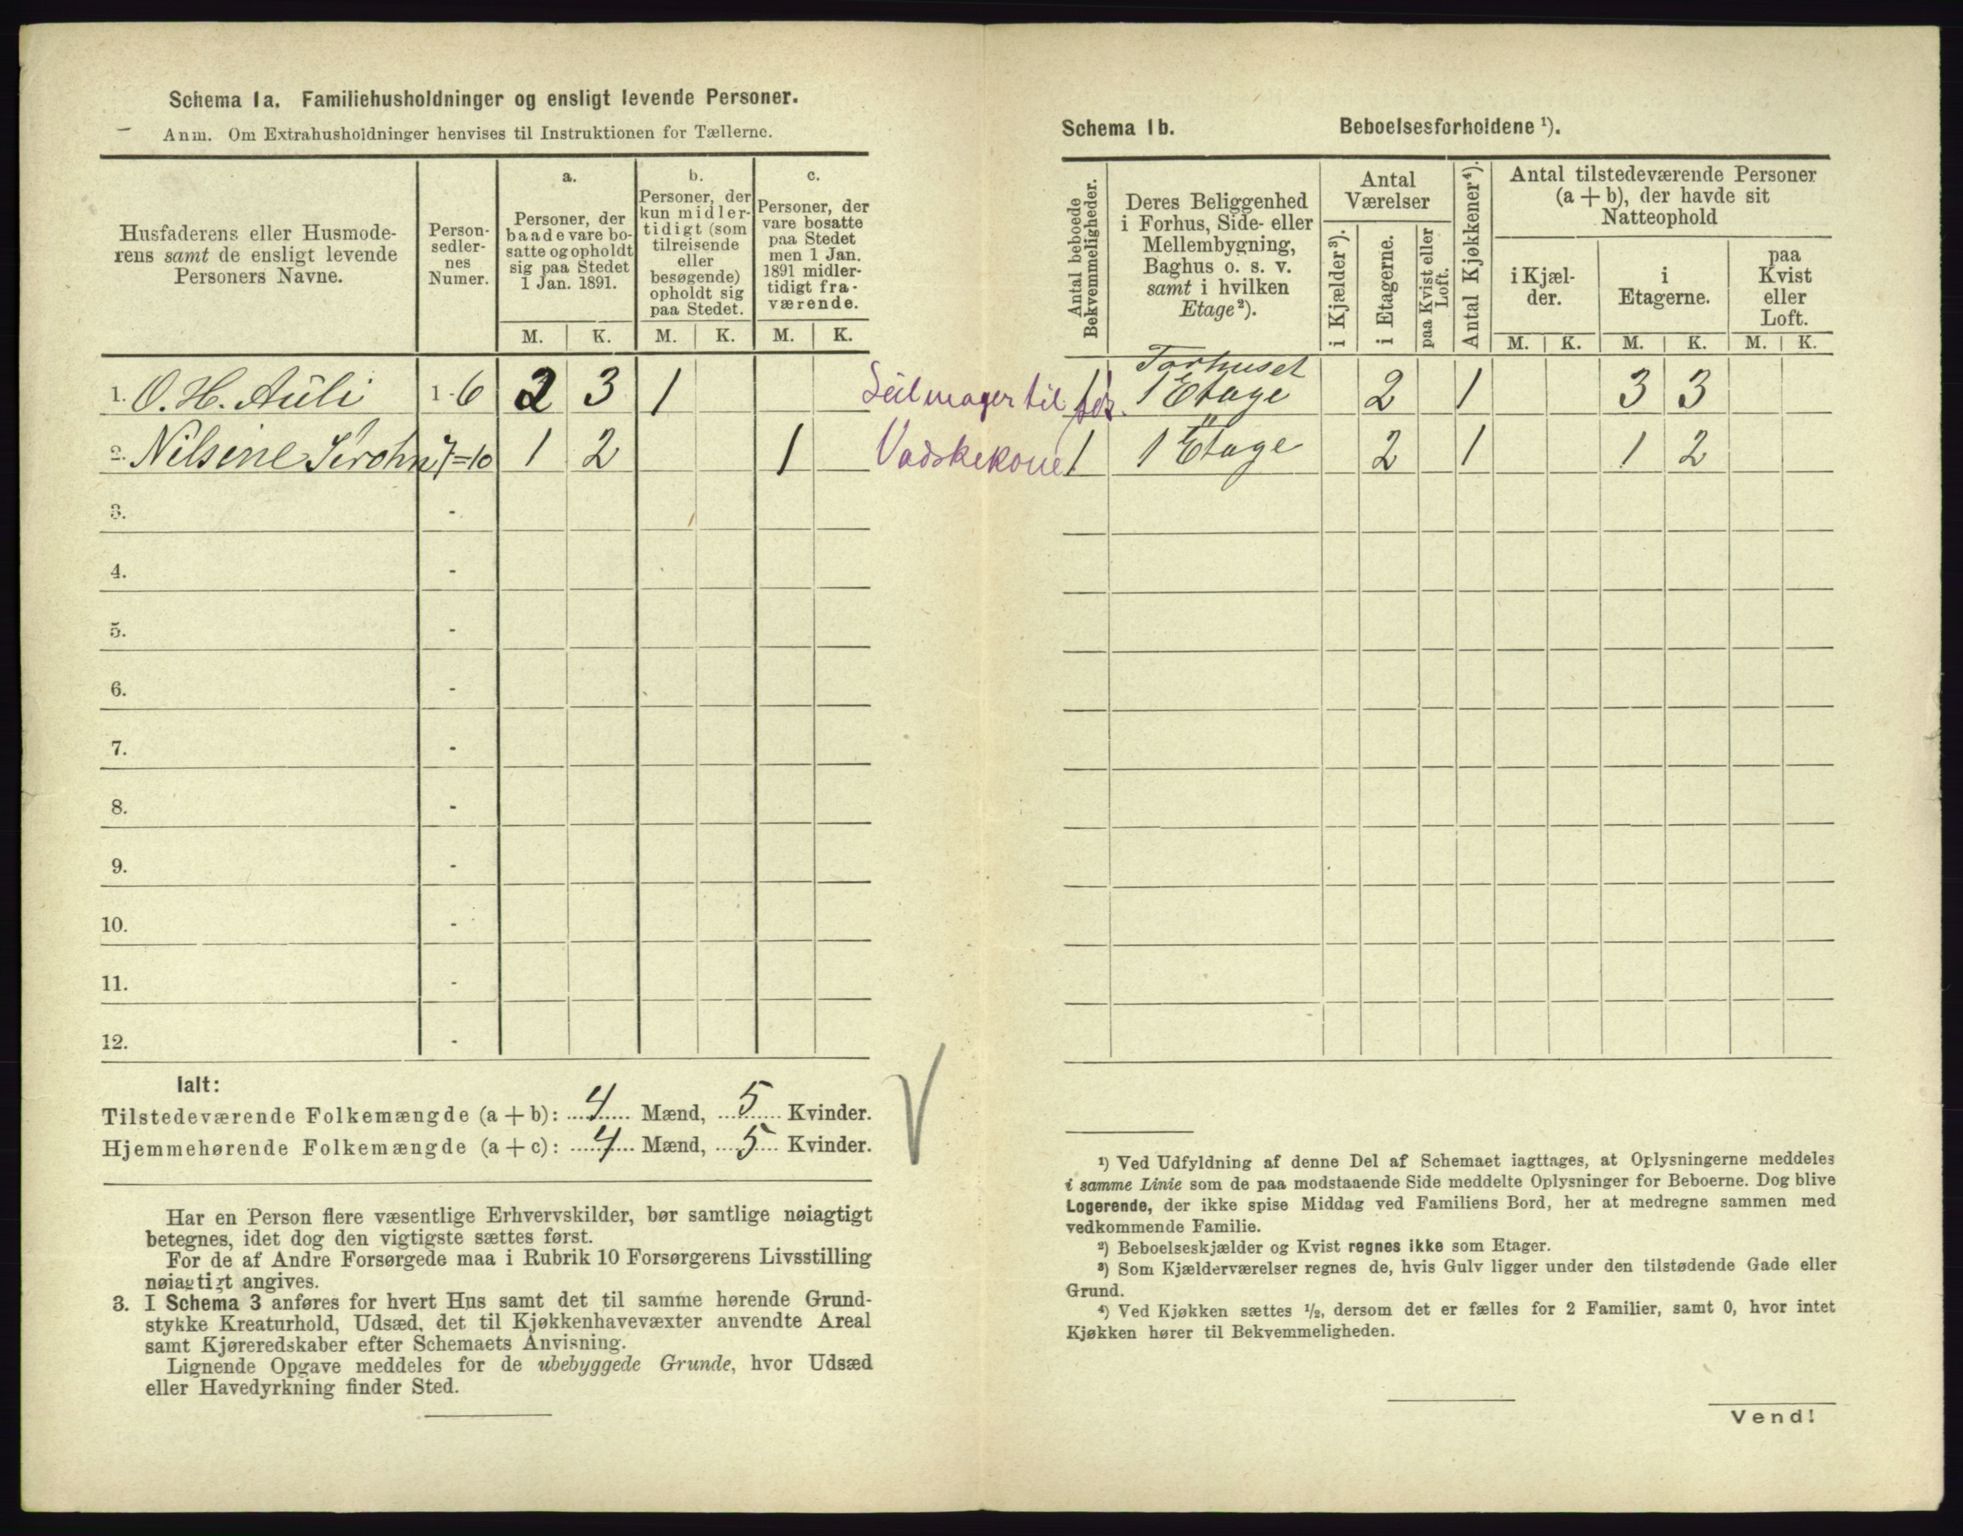 Schema 1a. Familiehusholdninger og ensligt levende Personer.
Anm. Om Extrahusholdninger henvises til Instruktionen for Tællerne.
Husfaderens eller Husmode-
rens samt de ensligt levende
Personers Navne.
Person-
sedler-
nes
Numer.
a.
Personer, der
baade vare bo-
satte og opholdt
sig paa Stedet
1 Jan. 1891.
b.
Personer, der
kun midler-
tidigt (som
tilreisende
eller
besøgende)
opholdt sig
paa Stedet.
c.
Personer, der
vare bosatte
paa Stedet
men 1 Jan.
1891 midler-
tidigt fra-
værende.
M. K. M. K. M. K.
1. O. H. Aüli 1-6 2 3 1 Seilmager til
2. Nilsine 7=10 1 2 1 Vadskekone
3. -
4. -
5. -
6. -
7. -
8. -
9. -
10. -
11. -
12. -
Ialt:
Tilstedeværende Folkemængde (a + b): 4 Mænd, 5 Kvinder.
Hjemmehørende Folkemængde (a + c): 4 Mænd, 5 Kvinder.
Har en Person flere væsentlige Erhvervskilder, bør samtlige nøiagtigt
betegnes, idet dog den vigtigste sættes først.
For de af Andre Forsørgede maa i Rubrik 10 Forsørgerens Livsstilling
nøiagtigt angives.
3. I Schema 3 anføres for hvert Hus samt det til samme hørende Grund-
stykke Kreaturhold, Udsæd, det til Kjøkkenhavevæxter anvendte Areal
samt Kjøreredskaber efter Schemaets Anvisning.
Lignende Opgave meddeles for de ubebyggede Grunde, hvor Udsæd
eller Havedyrkning finder Sted.
Schema 1b. Beboelsesforholdene ¹).
Antal beboede
Bekvemmeligheder.
Deres Beliggenhed
i Forhus, Side- eller
Mellembygning,
Baghus o. s. v.
samt i hvilken
Etage²).
Antal
Værelser
i Kjælder³).
i Etagerne.
paa Kvist eller
Loft.
Antal Kjøkkener⁴).
Antal tilstedeværende Personer
(a + b), der havde sit
Natteophold
i Kjæl-
der.
i
Etagerne.
paa
Kvist
eller
Loft.
M. K. M. K. M. K.
Forhuset
1 1 Etage 2 1 3 3
1 1 Etage 2 1 1 2
¹) Ved Udfyldning af denne Del af Schemaet iagttages, at Oplysningerne meddeles
i samme Linie som de paa modstaaende Side meddelte Oplysninger for Beboerne. Dog blive
Logerende, der ikke spise Middag ved Familiens Bord, her at medregne sammen med
vedkommende Familie.
²) Beboelseskjælder og Kvist regnes ikke som Etager.
³) Som Kjælderværelser regnes de, hvis Gulv ligger under den tilstødende Gade eller
Grund.
⁴) Ved Kjøkken sættes ½, dersom det er fælles for 2 Familier, samt 0, hvor intet
Kjøkken hører til Bekvemmeligheden.
Vend!